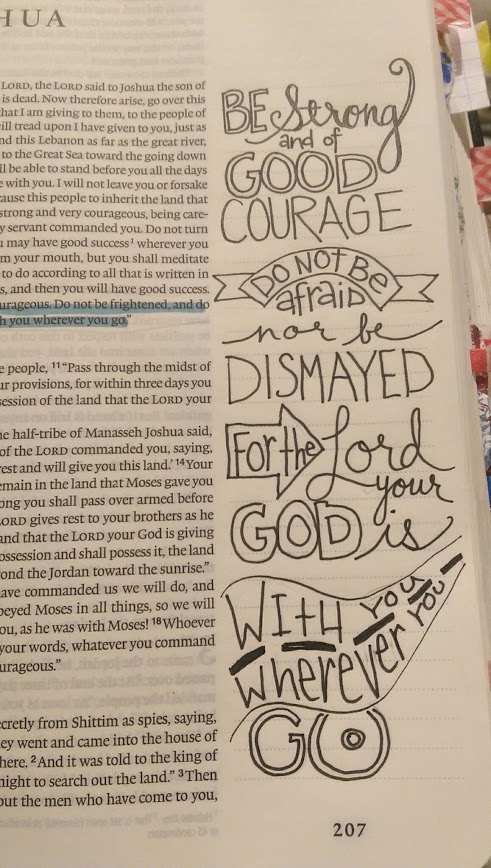 HUA
LORD, the LORD said to Joshua the son of
is dead. Now therefore arise, go over this
that I am giving to them, to the people of
ill tread upon I have given to you, just as
nd this Lebanon as far as the great river,
to the Great Sea toward the going down
ll be able to stand before you all the days
e with you. I will not leave you or forsake
ause this people to inherit the land that
strong and very courageous, being care-
y servant commanded you. Do not turn
u may have good success¹ wherever you
m your mouth, but you shall meditate
to do according to all that is written in
s, and then you will have good success.
urageous. Do not be frightened, and do
h you wherever you go."
e people, ¹¹"Pass through the midst of
ur provisions, for within three days you
session of the land that the LORD your
he half-tribe of Manasseh Joshua said,
of the LORD commanded you, saying,
rest and will give you this land.' ¹⁴Your
emain in the land that Moses gave you
ong you shall pass over armed before
LORD gives rest to your brothers as he
and that the LORD your God is giving
ossession and shall possess it, the land
ond the Jordan toward the sunrise."
ave commanded us we will do, and
beyed Moses in all things, so we will
ou, as he was with Moses! ¹⁸Whoever
your words, whatever you command
urageous."
ecretly from Shittim as spies, saying,
ey went and came into the house of
here. ²And it was told to the king of
night to search out the land." ³Then
out the men who have come to you,
BE Strong
and of
GOOD
COURAGE
DO NOT BE
afraid
nor be
DISMAYED
For the Lord
your
GOD is
WITH YOU
wherever YOU
GO
207